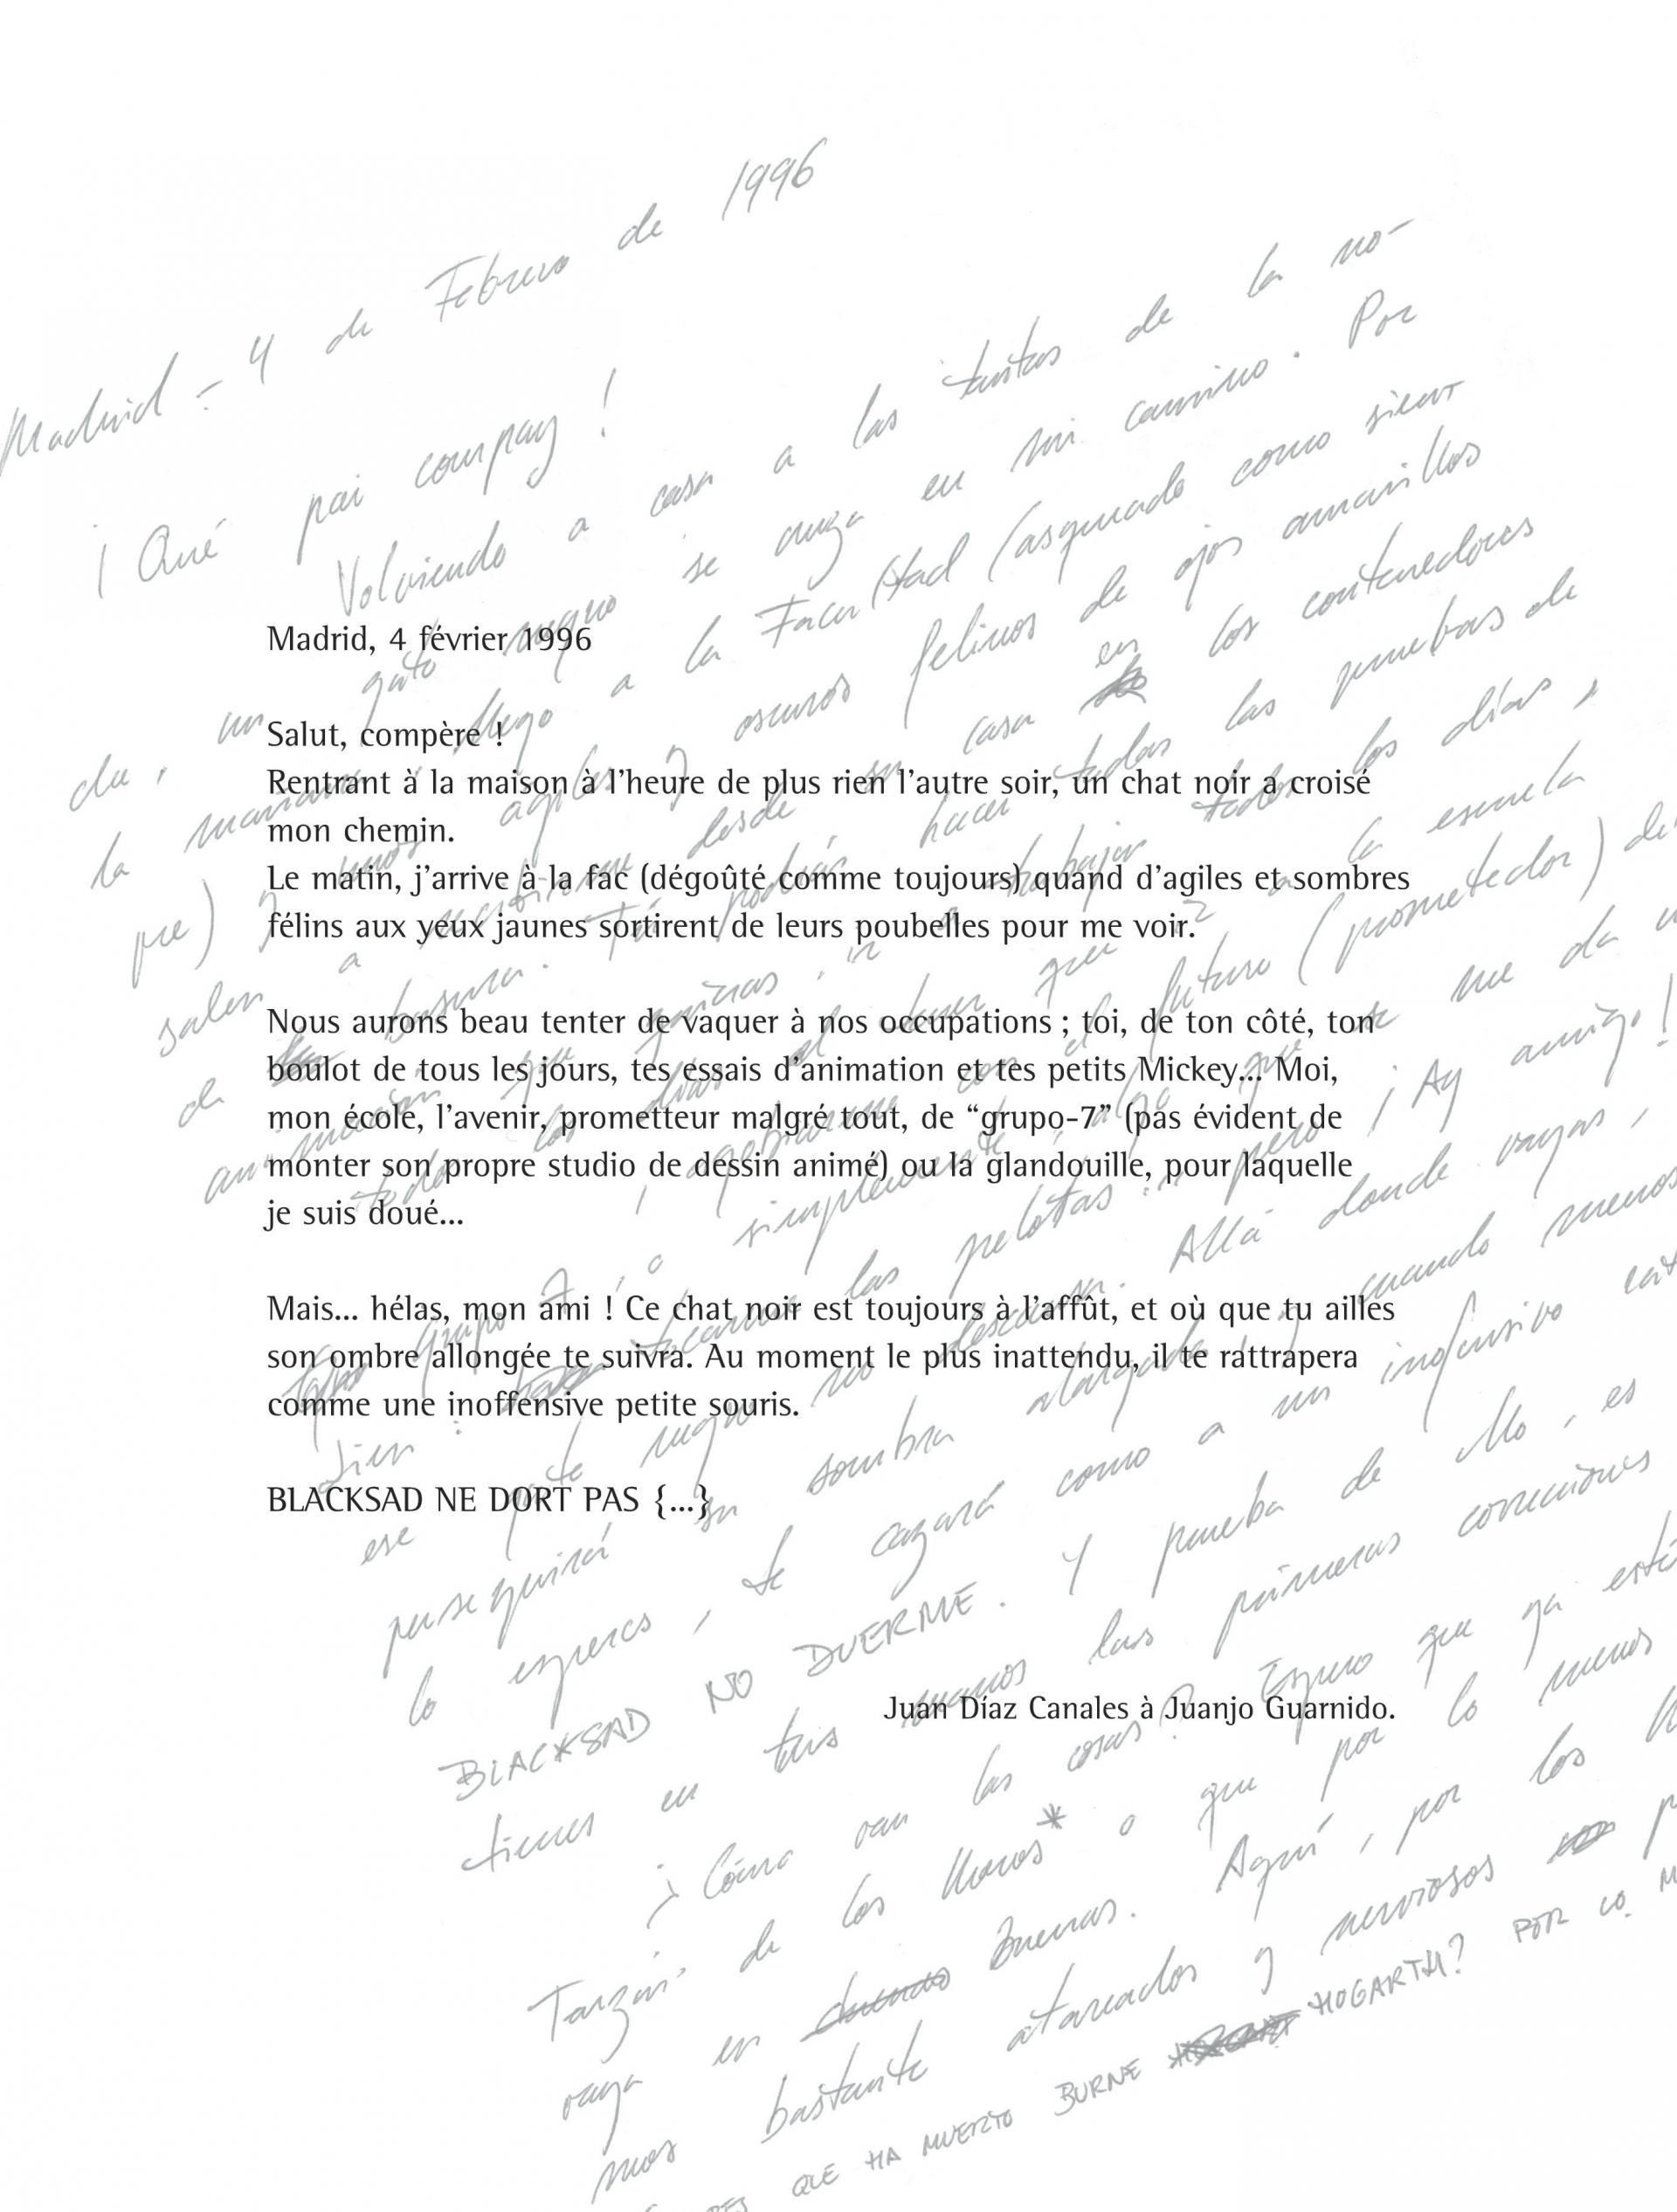 Madrid - 4 de Febrero de 1996
¡Qué pai compay!
Volviendo a casa a las tantas de la no-
che, un gato negro se cruza en mi camino. Por
la mañana, llego a la Facultad (asqueado como siem
pre) y unos ágiles y oscuros felinos de ojos amarillos
salen a recibirme desde su casa en los contenedores
de basura. Tú podrás hacer todas las pruebas de
animación que quieras, ir a trabajar todos los días,
todos los días el tener que a la escuela
agobiarme con el futuro (prometedor) del
grupo 7, o simplemente, algo que se me da
bien: tocarme las pelotas... pero ¡Ay amigo!
ese gato negro no descansa. Allá donde vayas,
perseguirá su sombra alargada, y cuando menos
lo esperes, te cazará como a un inofensivo
BLACKSAD NO DUERME. Y prueba de ello, es
tienes en tus manos las primeras correcciones
¿Cómo van las cosas? Espero que ya esté
Tarzán de los Monos* o que por lo menos
vaya en buenas. Aquí, por los
mos bastante atareados y nerviosos
QUE HA MUERTO BURNE HOGARTH? POR LO
Madrid, 4 février 1996
Salut, compère !
Rentrant à la maison à l’heure de plus rien l’autre soir, un chat noir a croisé
mon chemin.
Le matin, j’arrive à la fac (dégoûté comme toujours) quand d’agiles et sombres
félins aux yeux jaunes sortirent de leurs poubelles pour me voir.
Nous aurons beau tenter de vaquer à nos occupations ; toi, de ton côté, ton
boulot de tous les jours, tes essais d’animation et tes petits Mickey... Moi,
mon école, l’avenir, prometteur malgré tout, de “grupo-7” (pas évident de
monter son propre studio de dessin animé) ou la glandouille, pour laquelle
je suis doué...
Mais... hélas, mon ami ! Ce chat noir est toujours à l’affût, et où que tu ailles
son ombre allongée te suivra. Au moment le plus inattendu, il te rattrapera
comme une inoffensive petite souris.
BLACKSAD NE DORT PAS {...}
Juan Díaz Canales à Juanjo Guarnido.